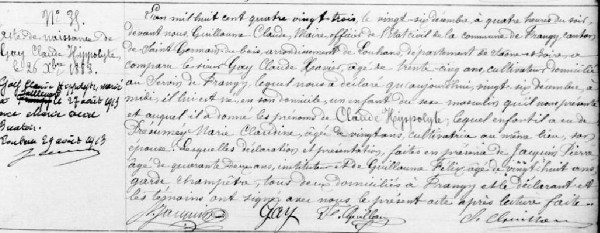 N° 35.
Acte de naissance de
Gay Claude Hippolyte,
le 26 Xbre 1883.
Gay Claude Hippolyte, marié
à le 27 août 1913
avec
29 août 1913
L'an mil huit cent quatre vingt trois, le vingt six Décembre, à quatre heures du soir,
devant nous Guillaume Claude, Maire, officier de l'Etat civil de la commune de Frangy, canton
de Saint Germain du bois, arrondissement de Louhans, département de Saône-et-Loire, a
comparu le sieur Gay Claude Xavier, âgé de trente cinq ans, cultivateur domicilié
au de Frangy, lequel nous a déclaré qu'aujourd'hui, vingt six décembre, à
midi, il lui est né, en son domicile, un enfant du sexe masculin qu'il nous présente
et auquel il a donné les prénoms de Claude Hippolyte, lequel enfant il a eu de
Marie Claudine, âgée de vingt ans, cultivatrice au même lieu, son
épouse. Lesquelles déclaration et présentation, faites en présence de Jacquin Pierre
âgé de quarante deux ans, instituteur et de Guillaume Félix, âgé de vingt huit ans
garde champêtre, tous deux domiciliés à Frangy et le déclarant et
les témoins ont signé avec nous le présent acte après lecture faite.
Jacquin Gay